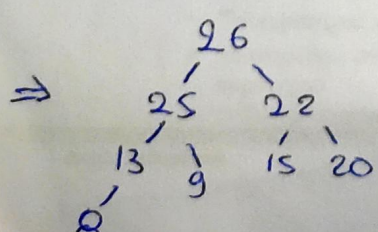 26
⇒ 25 22
13 9 15 20
0